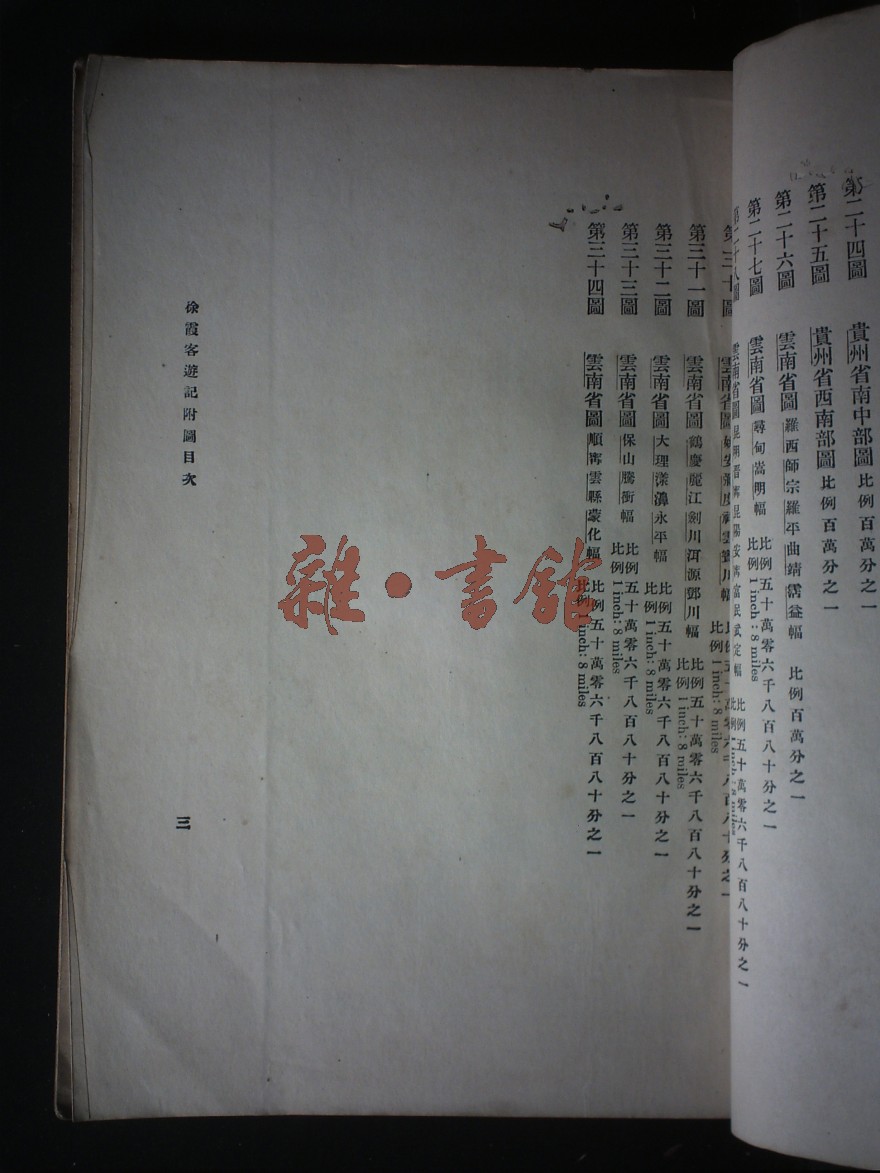 第二十四圖 貴州省南中部圖 比例百萬分之一
第二十五圖 貴州省西南部圖 比例百萬分之一
第二十六圖 雲南省圖 羅西師宗羅平曲靖霑益幅 比例百萬分之一
第二十七圖 雲南省圖 尋甸嵩明幅 比例五十萬零六千八百八十分之一 比例 1 inch: 8 miles
第二十八圖 雲南省圖 昆明晋寗昆陽安寗富民武定幅 比例五十萬零六千八百八十分之一
第三十圖 雲南省圖
比例 1 inch: 8 miles
第三十一圖 雲南省圖 鶴慶麗江劍川洱源鄧川幅 比例五十萬零六千八百八十分之一 比例 1 inch: 8 miles
第三十二圖 雲南省圖 大理漾濞永平幅 比例五十萬零六千八百八十分之一 比例 1 inch: 8 miles
第三十三圖 雲南省圖 保山騰衝幅 比例五十萬零六千八百八十分之一 比例 1 inch: 8 miles
第三十四圖 雲南省圖 順寗雲縣蒙化幅 比例五十萬零六千八百八十分之一 比例 1 inch: 8 miles
徐霞客遊記附圖目次
三
雜·書館